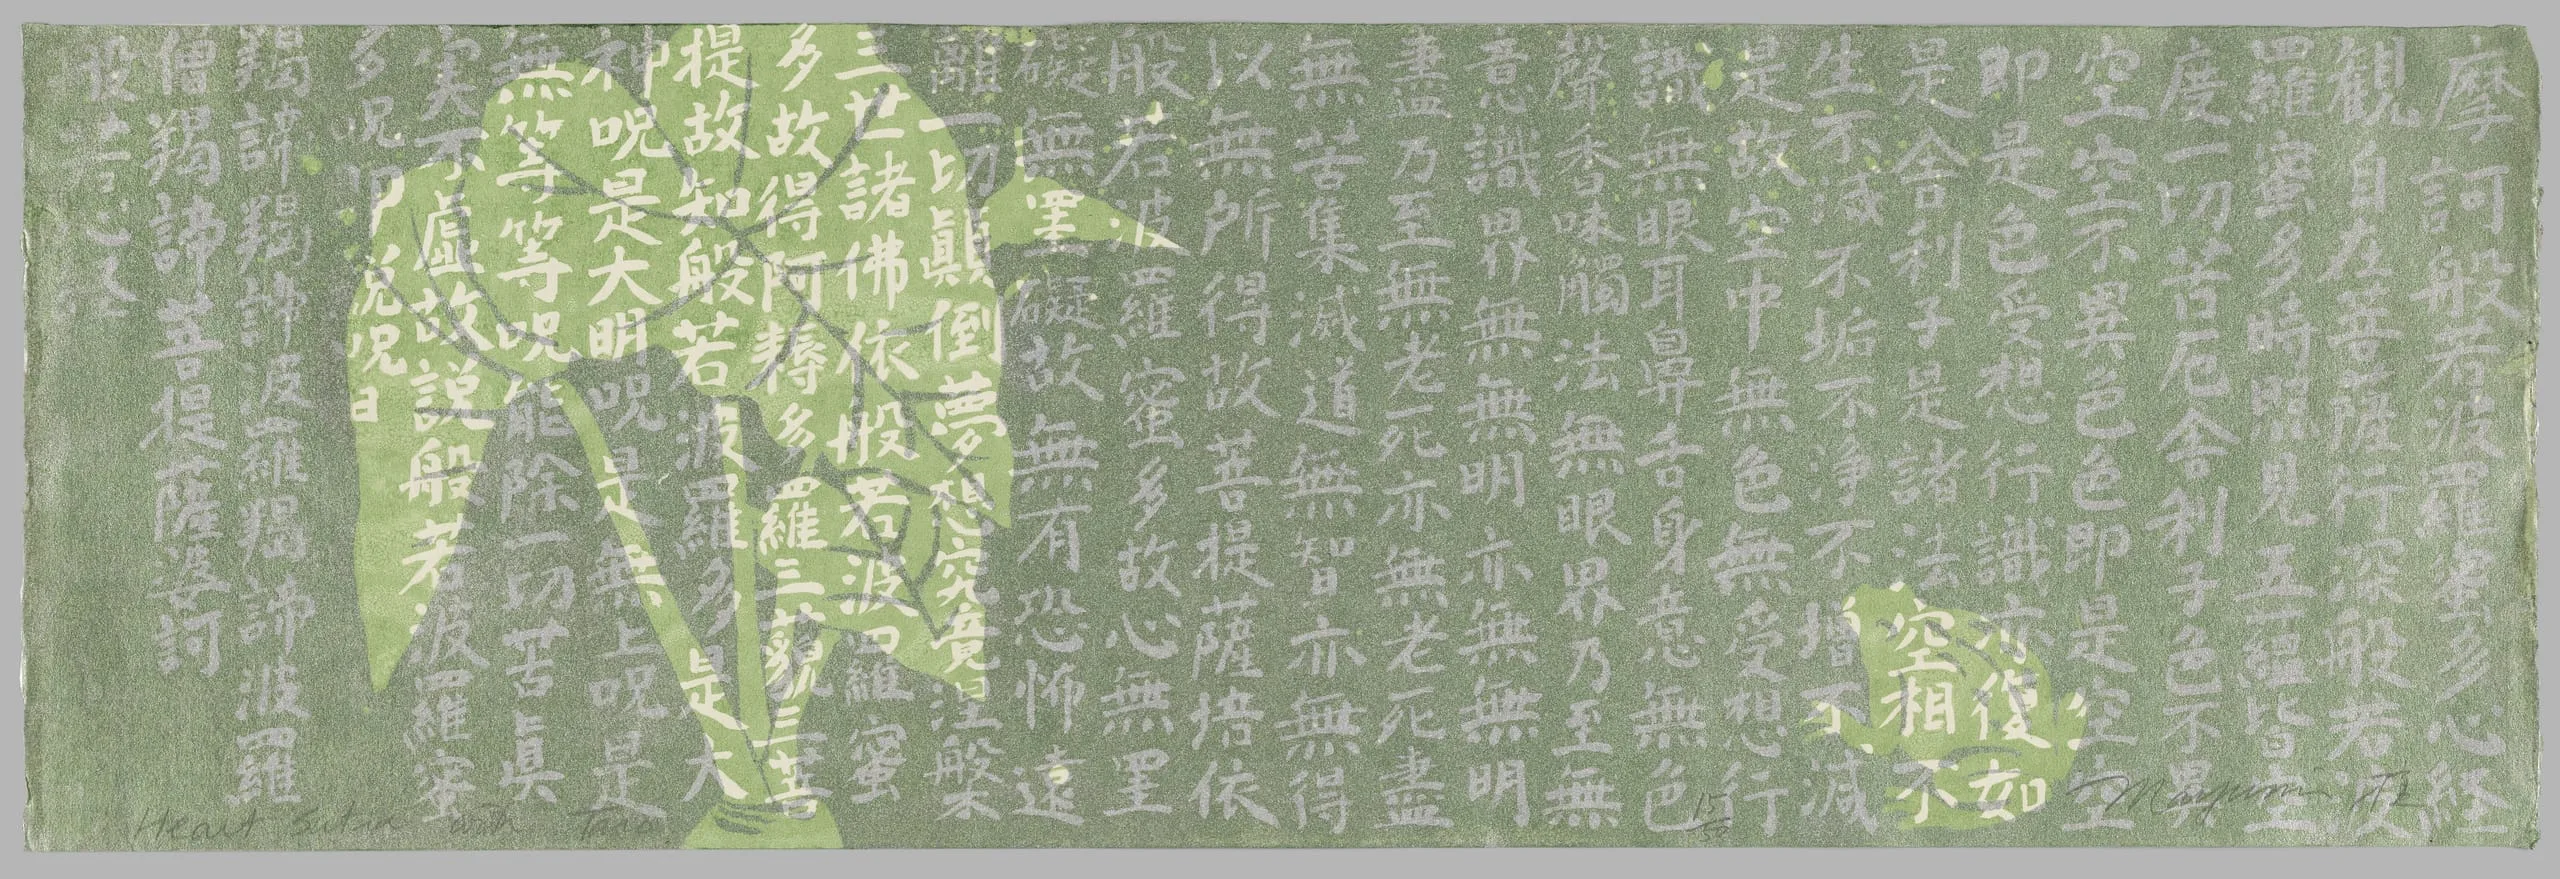 摩訶般若波羅蜜多心経
観自在菩薩行深般若波
羅蜜多時照見五蘊皆空
度一切苦厄舎利子色不異
空空不異色色即是空空
即是色受想行識亦復如
是舎利子是諸法空相不
生不滅不垢不浄不増不減
是故空中無色無受想行
識無眼耳鼻舌身意無色
聲香味觸法無眼界乃至無
意識界無無明亦無無明
盡乃至無老死亦無老死盡
無苦集滅道無智亦無得
以無所得故菩提薩埵依
般若波羅蜜多故心無罣
礙無罣礙故無有恐怖遠
離一切顚倒夢想究竟涅槃
三世諸佛依般若波羅蜜
多故得阿耨多羅三藐三菩
提故知般若波羅多是大
神呪是大明呪是無上呪是
無等等呪能除一切苦眞
実不虚故説般若波羅蜜
多呪即説呪曰
羯諦羯諦波羅羯諦波羅
僧羯諦菩提薩婆訶
般若心経
Heart Sutra with Taro
15/50
Mayumi